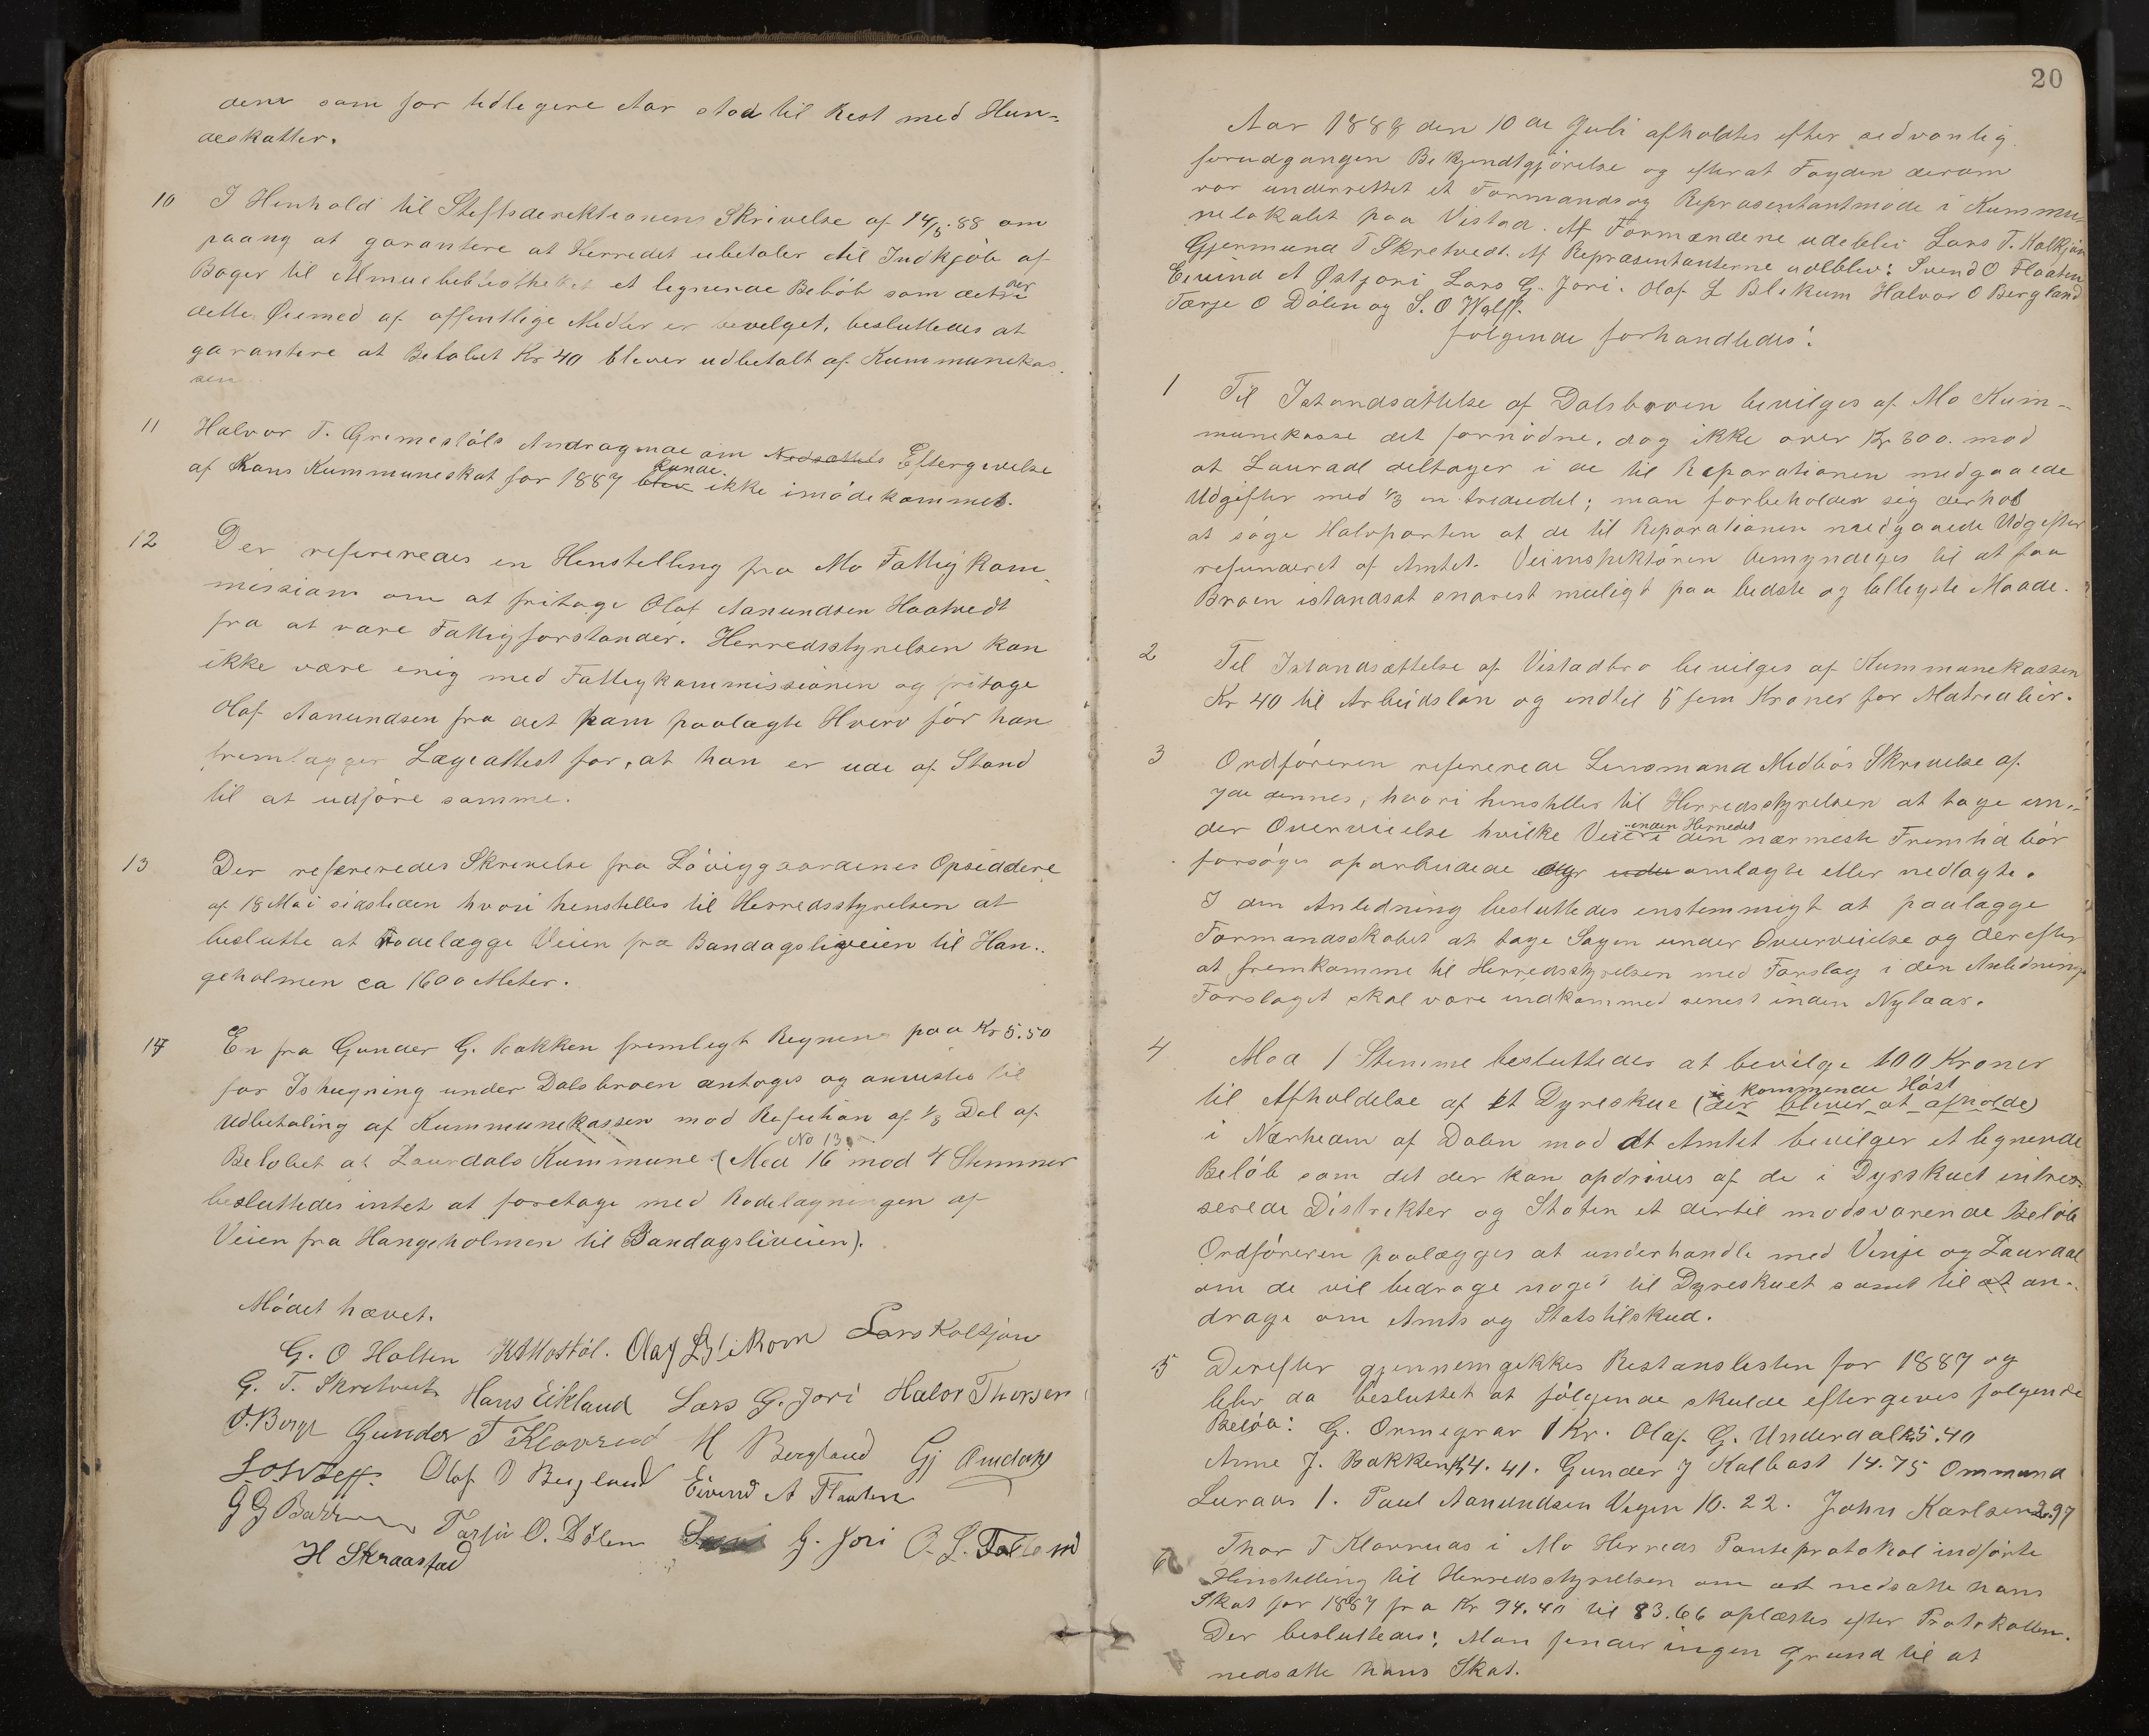 dem som for tidligere Aar stod til Rest med Hun-
deskatter.
10 I Henhold til Stiftsderektionens Skrivelse af 14/5.88 om
paany at garantere at Herredet udbetaler til Indkjöb af
Böger til Almuebebliotheket et legnende Belöb som det der
dette Öiemed af offentlige Midler er bevelget, besluttedes at
garantere at Belöbet Kr 40 blever udbetalt af Kummunekas
sen
11 Halvor T. Grimestöls Andragende om Nedsættels Eftergivelse
af hans Kummuneskat for 1887 blev kunde ikke imödekommes.
12 Der refereredes en Henstelling fra Mo Fattigkom
missiom om at fritage Olaf Aanundsen Haatvedt
fra at være Fattigforstander. Herredsstyrelsen kan
ikke være enig med Fattigkommissionen og fritage
Olaf Aanundsen fra det ham paalagte Hverv för han
fremlægger Lægeattest for, at han er ude af Stand
til at udföre samme.
13 Der refereredes Skrivelse fra Löviggaardenes Opsiddere
af 18 Mai sidstleden hvori henstelles til Herredsstyrelsen at
beslutte at Rodelægge Veien fra Bandagsliveien til Han-
geholmen ca 1600 Meter.
14 En fra Gunder G. Bakken fremlegt Regnen paa Kr 5.50
for Ishugning under Dalsbroen antoges og anvistes til
Udbetaling af Kummunekassen mod Refution af 1/3 Del af
Belöbet af Laurdals Kummune. (No 13. Med 16 mod 4 Stemmer
besluttedes intet at foretage med Rodelægningen af
Veien fra Hangeholmen til Bandagsliveien).
Mödet hævet.
G. O Holten Olaf L Blikom Lars Kolkjön
G. T. Skretveit Hans Eikland Lars G. Jori Halvor Thorsen
O. Berge Gunder T Klovreid H Bergland Gj Omdahl
S.O.Wolff. Olaf O Bergland Eivind A Flaaten
G G Bakken Tarjei O. Dölen G. Jori O. L.
H Skraastad
20
Aar 1888 den 10de Juli afholdtes efter sedvanlig
forudgangen Bekjendtgjörelse og efterat Fogden derom
var underrettet et Formands og Repræsentantmöde i Kummu
nelokalet paa Vistad. Af Formændene udeblei Lars T. Kolkjön
Gjermund T Skretvedt. Af Repræsentanterne udeblev: Svend O Flaaten
Eivind A Östjori Lars G. Jori. Olaf L Blikum Halvor O Bergland
Tarje O Dölen og S. O Wolff.
fölgende forhandledes:
1 Til Istandsættelse af Dalsbroen bevilges af Mo Kum-
munekasse det fornödne, dog ikke over Kr 300. mod
at Laurdal deltager i de til Reparationen medgaaede
Udgifter med 1/3 en trediedel; man forbeholder sig derhos
at söge Halvparten af de til Reparationen medgaaede Udgifter
refunderet af Amtet. Veiinspektören bemyndiges til at faa
Broen istandsat snarest muligt paa bedste og billigste Maade.
2 Til Istandsættelse af Vistadbro bevilges af Kummunekassen
Kr 40 til Arbeidslön og indtil 5 fem Kroner for Matrealier.
3 Ordföreren refererede Lensmand Midbös Skrivelse af
7de dennes, hvori henstilles til Herredsstyrelsen at tage un-
der Overveielse hvilke Veie inden Herredet i den nærmeste Fremtid bör
forsöges oparbeidede og ude omlagte eller nedlagte.
I den Anledning besluttedes enstemmigt at paalægge
Formandsskabet at tage Sagen under Overveielse og derefter
at fremkomme til Herredsstyrelsen med Forslag i den Anledning
Forslaget skal være indkommed senest inden Nytaar.
4 Mod 1 Stemme besluttedes at bevilge 100 Kroner
til Afholdelse af et Dyreskue (der i kommende Höst blever at afholde)
i Nærheden af Dalen mod at Amtet bevilger et legnende
Belöb som det der kan opdrives af de i Dyrskuet intres-
serede Distrekter og Staten et dertil modsvarende Belöb
Ordföreren paalægges at underhandle med Vinje og Laurdal
om de vil bedrage noget til Dyreskuet samt til at an-
drage om Amts og Statstilskud.
5 Derefter gjennemgikkes Restanslesten for 1887 og
blev da besluttet at fölgende skulde eftergeves fölgende
Belöb: G. Ormegrav 1 Kr. Olaf G. Underdal Kr 5.40
Anne J. Bakken Kr 4.41. Gunder J Kalbast 14.75 Ommund
Luraas 1. Paul Aanundsen Vegen 10.22. John Karlsen 2.97
6 Thor T Klovreids i Mo Herreds Panteprotokol indförte
Henstelling til Herredsstyrelsen om at nedsætte hans
Skat for 1887 fra Kr 94.40 til 83.66 oplæstes efter Protokollen.
Der besluttedes: Man finder ingen Grund til at
nedsætte hans Skat.